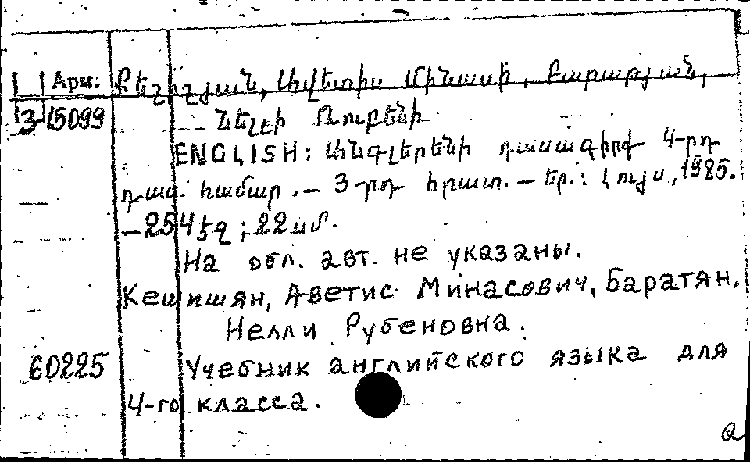 Арм. Քեշիշյան, Ավետիս Մինասի, Բարաթյան,
3 15099 Նելլի Ռուբենի
ENGLISH: Անգլերենի դասագիրք 4-րդ
դաս. համար. – 3-րդ հրատ. – Եր.: Լույս, 1985.
– 254 էջ ; 22 սմ.
На обл. авт. не указаны.
Кешишян, Аветис Минасович, Баратян,
Нелли Рубеновна.
60225 Учебник английского языка для
4-го класса.
a